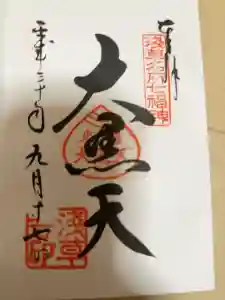 奉拝
浅草名所七福神
大黒天
平成三十年九月十七日
浅草